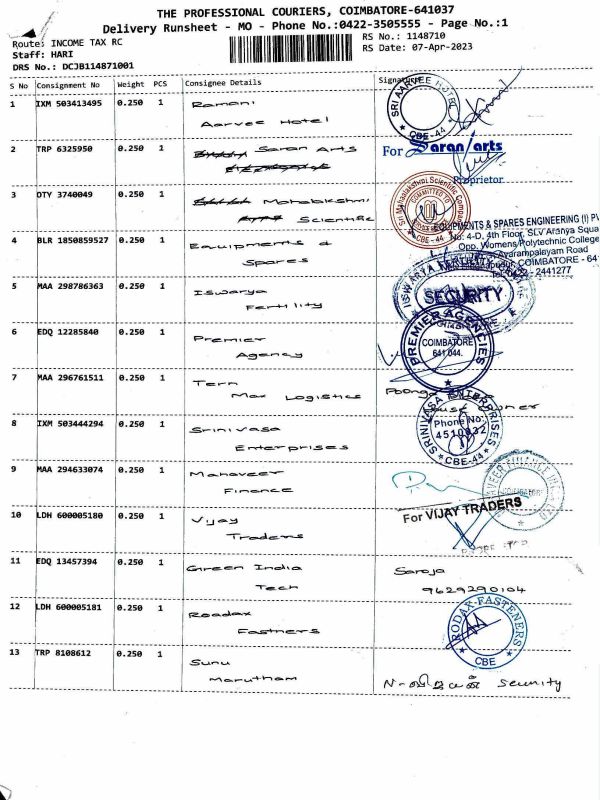 THE PROFESSIONAL COURIERS, COIMBATORE-641037
Delivery Runsheet - MO - Phone No.:0422-3505555 - Page No.:1
Route: INCOME TAX RC
RS No.: 1148710
Staff: HARI
RS Date: 07-Apr-2023
DRS No.: DCJB114871001
S No Consignment No Weight PCS Consignee Details Signature
1 IXM 503413495 0.250 1 Ramani
Aarvee Hotel
SRI AARVEE HOTEL
CBE-44
2 TRP 6325950 0.250 1 Saran Arts
For Saran/arts
Proprietor
3 DTY 3740049 0.250 1 Mahalakshmi
Scientific
Sri Mahalakshmi Scientific Company
COMMITTED TO
CBE-44
4 BLR 1850859527 0.250 1 Equipments &
Spares
EQUIPMENTS & SPARES ENGINEERING (I) PV
No. 4-D, 4th Floor, SLV Aranya Squa
Opp. Womens Polytechnic College
Avarampalayam Road
COIMBATORE - 641
2441277
5 MAA 298786363 0.250 1 Iswarya
Fertility
ISWARYA FERTILITY
SECURITY
6 EDQ 12285840 0.250 1 Premier
Agency
PREMIER AGENCIES
COIMBATORE
641 044.
7 MAA 296761511 0.250 1 Tern
Max Logistics
8 IXM 503444294 0.250 1 Srinivasa
Enterprises
SRINIVASA ENTERPRISES
Phone No:
4510832
CBE-44
9 MAA 294633074 0.250 1 Mahaveer
Finance
10 LDH 600005180 0.250 1 Vijay
Traders
For VIJAY TRADERS
11 EDQ 13457394 0.250 1 Green India
Tech
Saroja
9629290104
12 LDH 600005181 0.250 1 Roadax
Fastners
RODAX-FASTENERS
CBE
13 TRP 8108612 0.250 1 Sunu
Marutham
Security